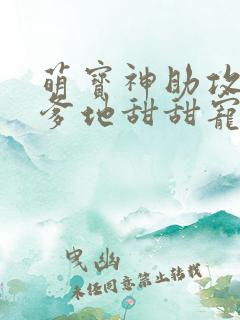 萌宝神助攻
爹地甜甜宠
曳幽
未经同意禁止转载